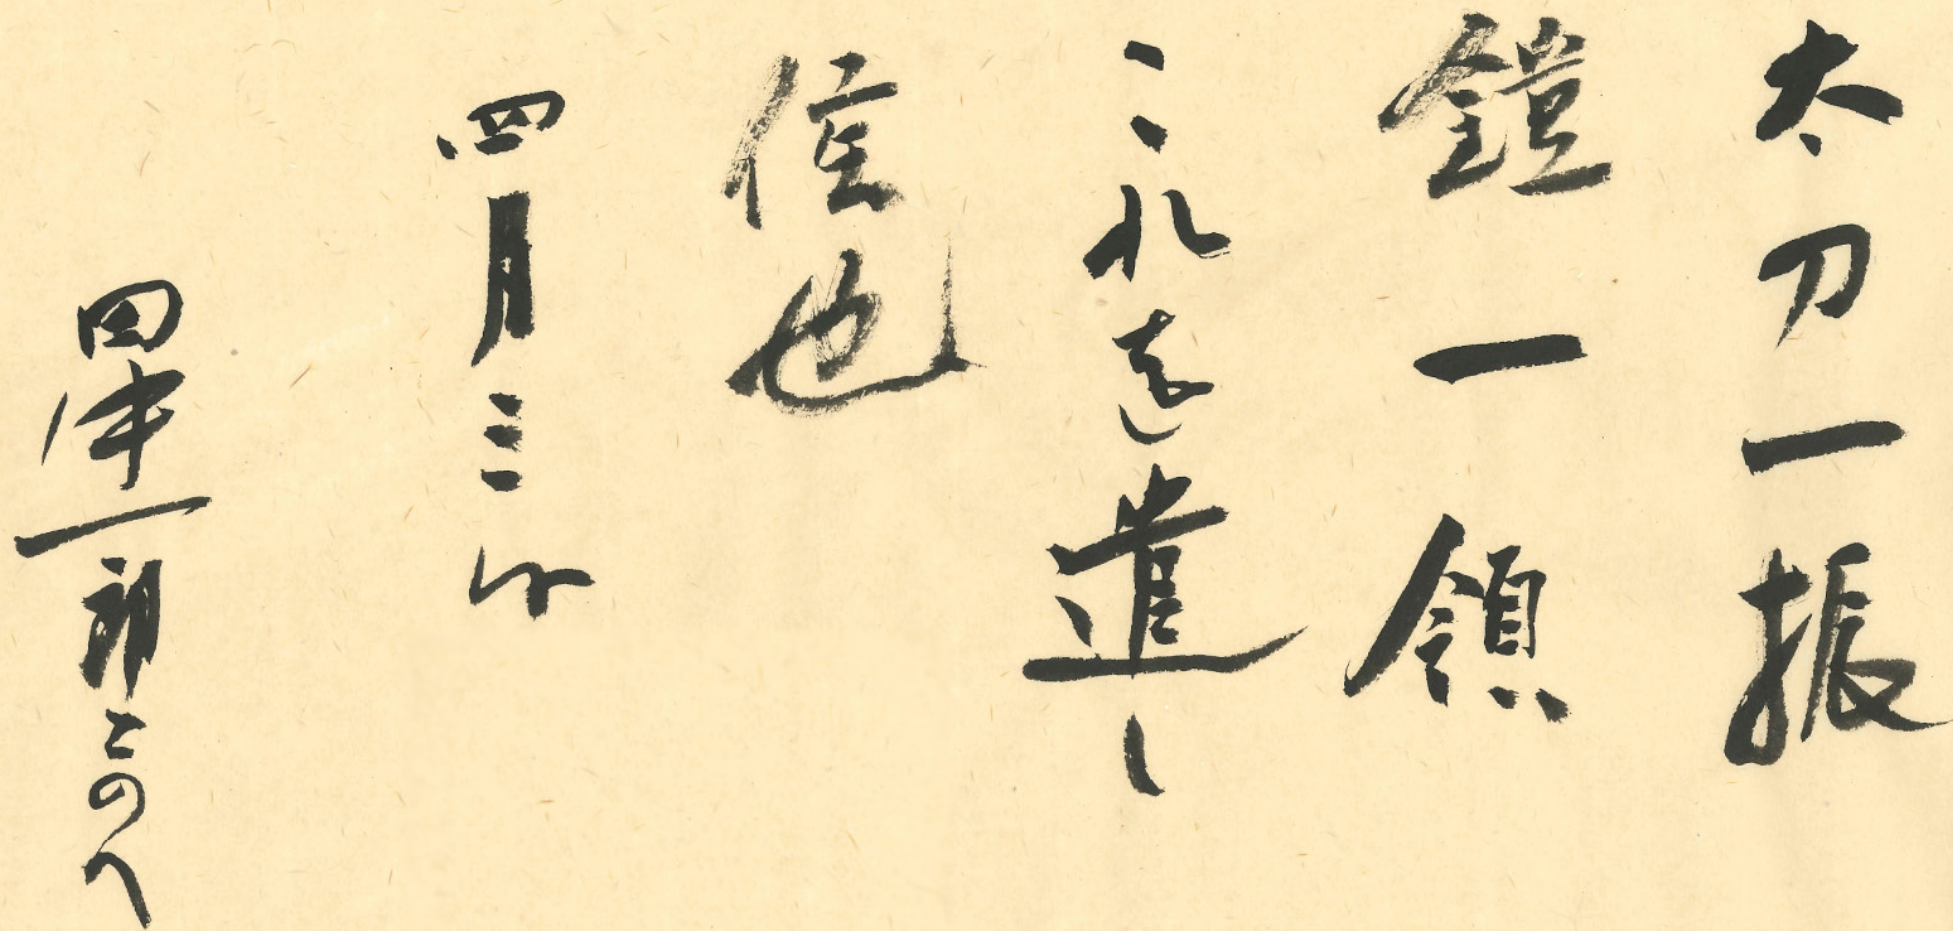 太刀一振
鎧一領
これを遣し
候也
四月三日
田中一郎とのへ